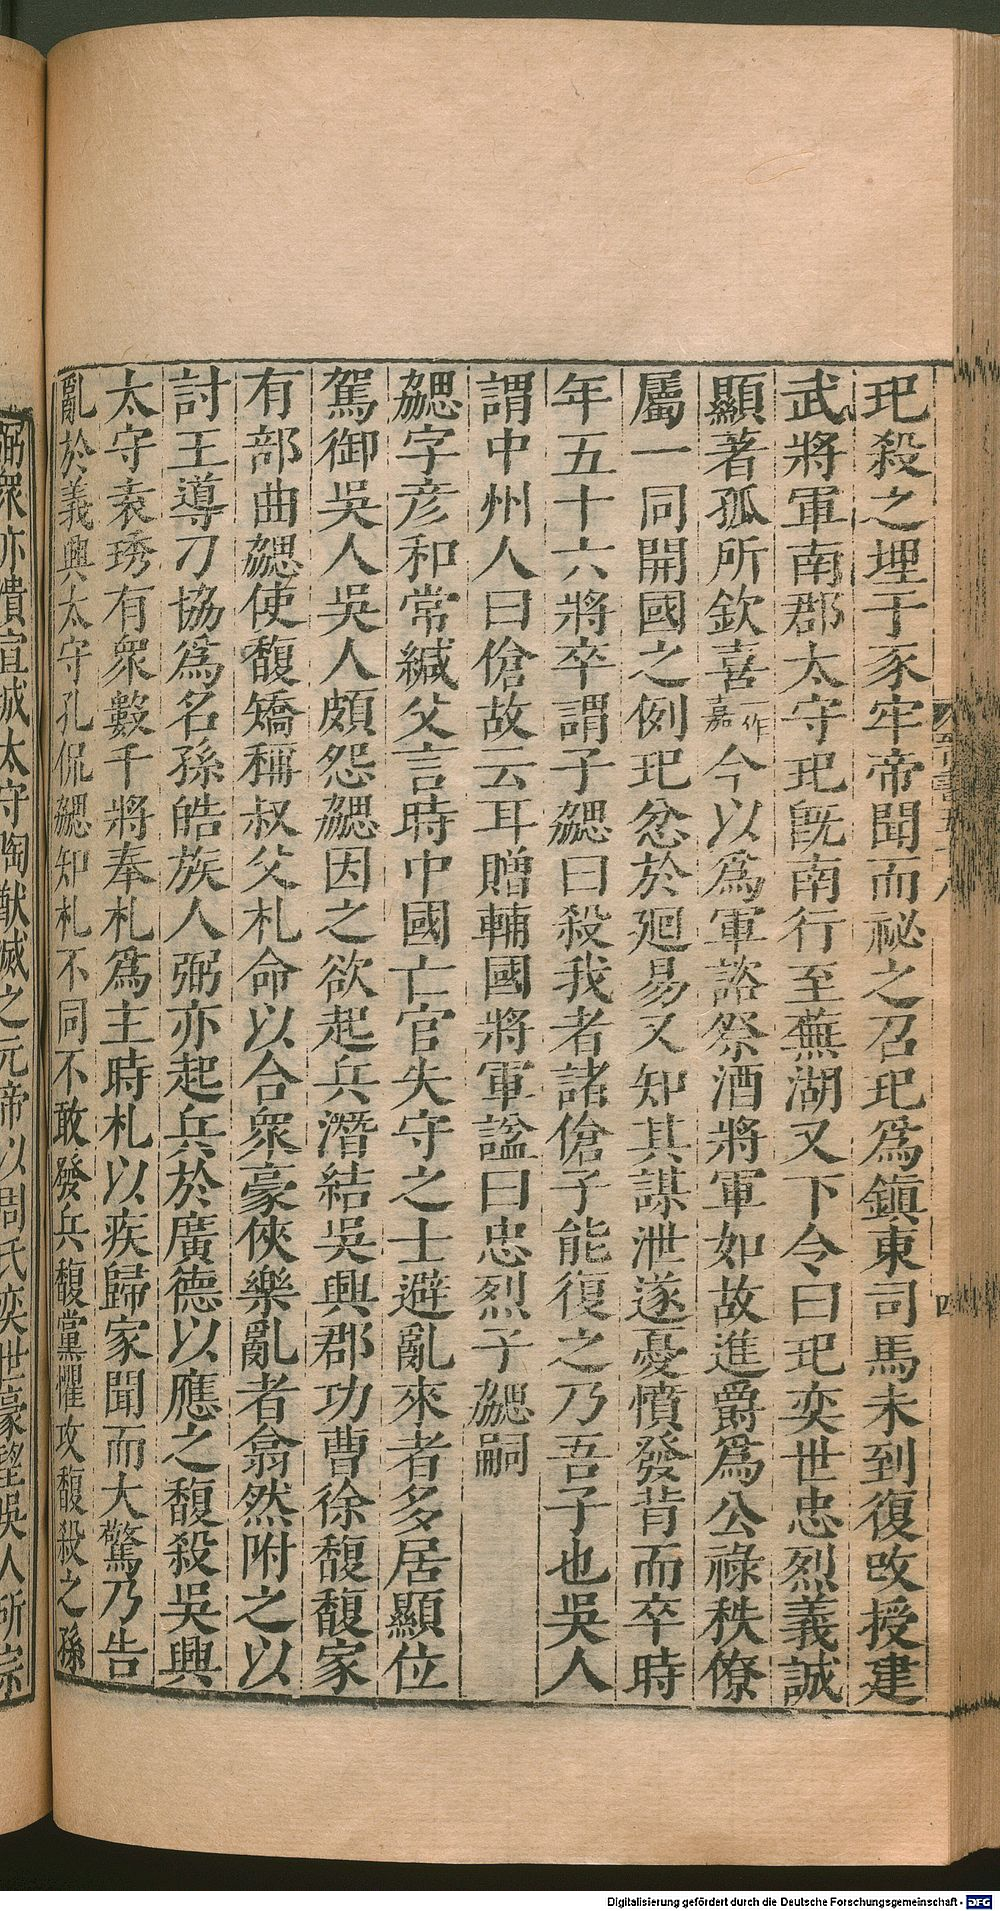 玘殺之埋于豕牢帝聞而祕之召玘爲鎮東司馬未到復改授建
武將軍南郡太守玘旣南行至蕪湖又下令曰玘奕世忠烈義誠
顯著孤所欽喜一作嘉今以爲軍諮祭酒將軍如故進爵爲公祿秩僚
屬一同開國之例玘忿於廻易又知其謀泄遂憂憤發背而卒時
年五十六將卒謂子勰曰殺我者諸傖子能復之乃吾子也吳人
謂中州人曰傖故云耳贈輔國將軍諡曰忠烈子勰嗣
勰字彥和常緘父言時中國亡官失守之士避亂來者多居顯位
駕御吳人吳人頗怨勰因之欲起兵潛結吳興郡功曹徐馥馥家
有部曲勰使馥矯稱叔父札命以合衆豪俠樂亂者翕然附之以
討王導刁協爲名孫皓族人弼亦起兵於廣德以應之馥殺吳興
太守袁琇有衆數千將奉札爲主時札以疾歸家聞而大驚乃告
亂於義興太守孔侃勰知札不同不敢發兵馥黨懼攻馥殺之孫
弼衆亦潰宣城太守陶猷滅之元帝以周氏奕世豪望吳人所宗
晉書五十八
四
Digitalisierung gefördert durch die Deutsche Forschungsgemeinschaft - DFG